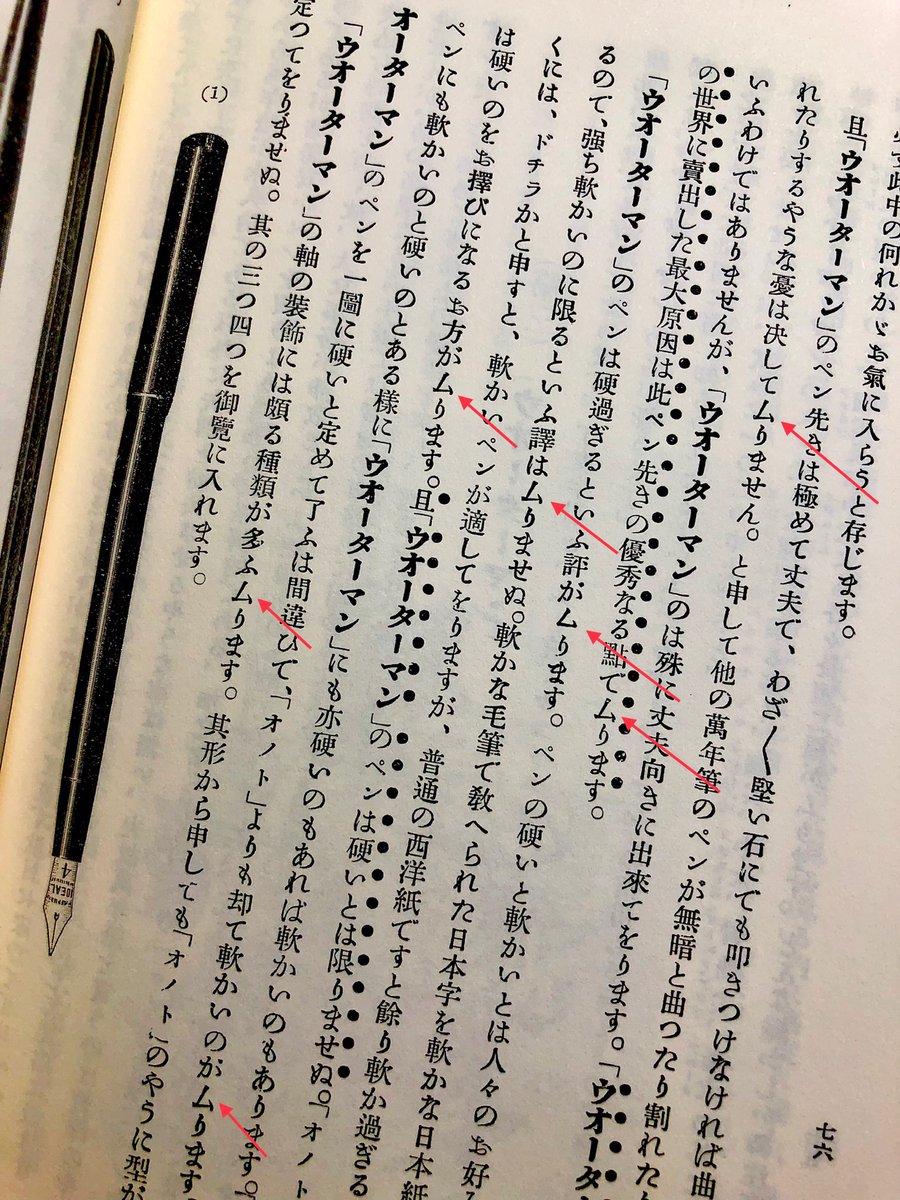 七六
す此中の何れかゞお氣に入らうと存じます。
且「ウオーターマン」のペン先きは極めて丈夫で、わざ〱堅い石にでも叩きつけなければ曲
れたりするやうな憂は決してムりません。と申して他の萬年筆のペンが無暗と曲つたり割れた
いふわけではありませんが、「ウオーターマン」のは殊に丈夫向きに出來てをります。「ウオータ
の世界に賣出した最大原因は此ペン先きの優秀なる點でムります。
「ウオーターマン」のペンは硬過ぎるといふ評がムります。ペンの硬いと軟かいとは人々のお好
るので、强ち軟かいのに限るといふ譯はムりませぬ。軟かな毛筆で敎へられた日本字を軟かな日本紙
くには、ドチラかと申すと、軟かいペンが適してをりますが、普通の西洋紙ですと餘り軟か過ぎる
は硬いのをお擇びになるお方がムります。且「ウオーターマン」のペンは硬いとは限りませぬ。「オノト
ペンにも軟かいのと硬いのとある樣に「ウオーターマン」にも亦硬いのもあれば軟かいのもあります。「
オーターマン」のペンを一圖に硬いと定めて了ふは間違ひで、「オノト」よりも却て軟かいのがムります
「ウオーターマン」の軸の裝飾には頗る種類が多ふムります。其形から申しても「オノト」のやうに型が
定つてをりませぬ。其の三つ四つを御覽に入れます。
(1)
4
IDEAL